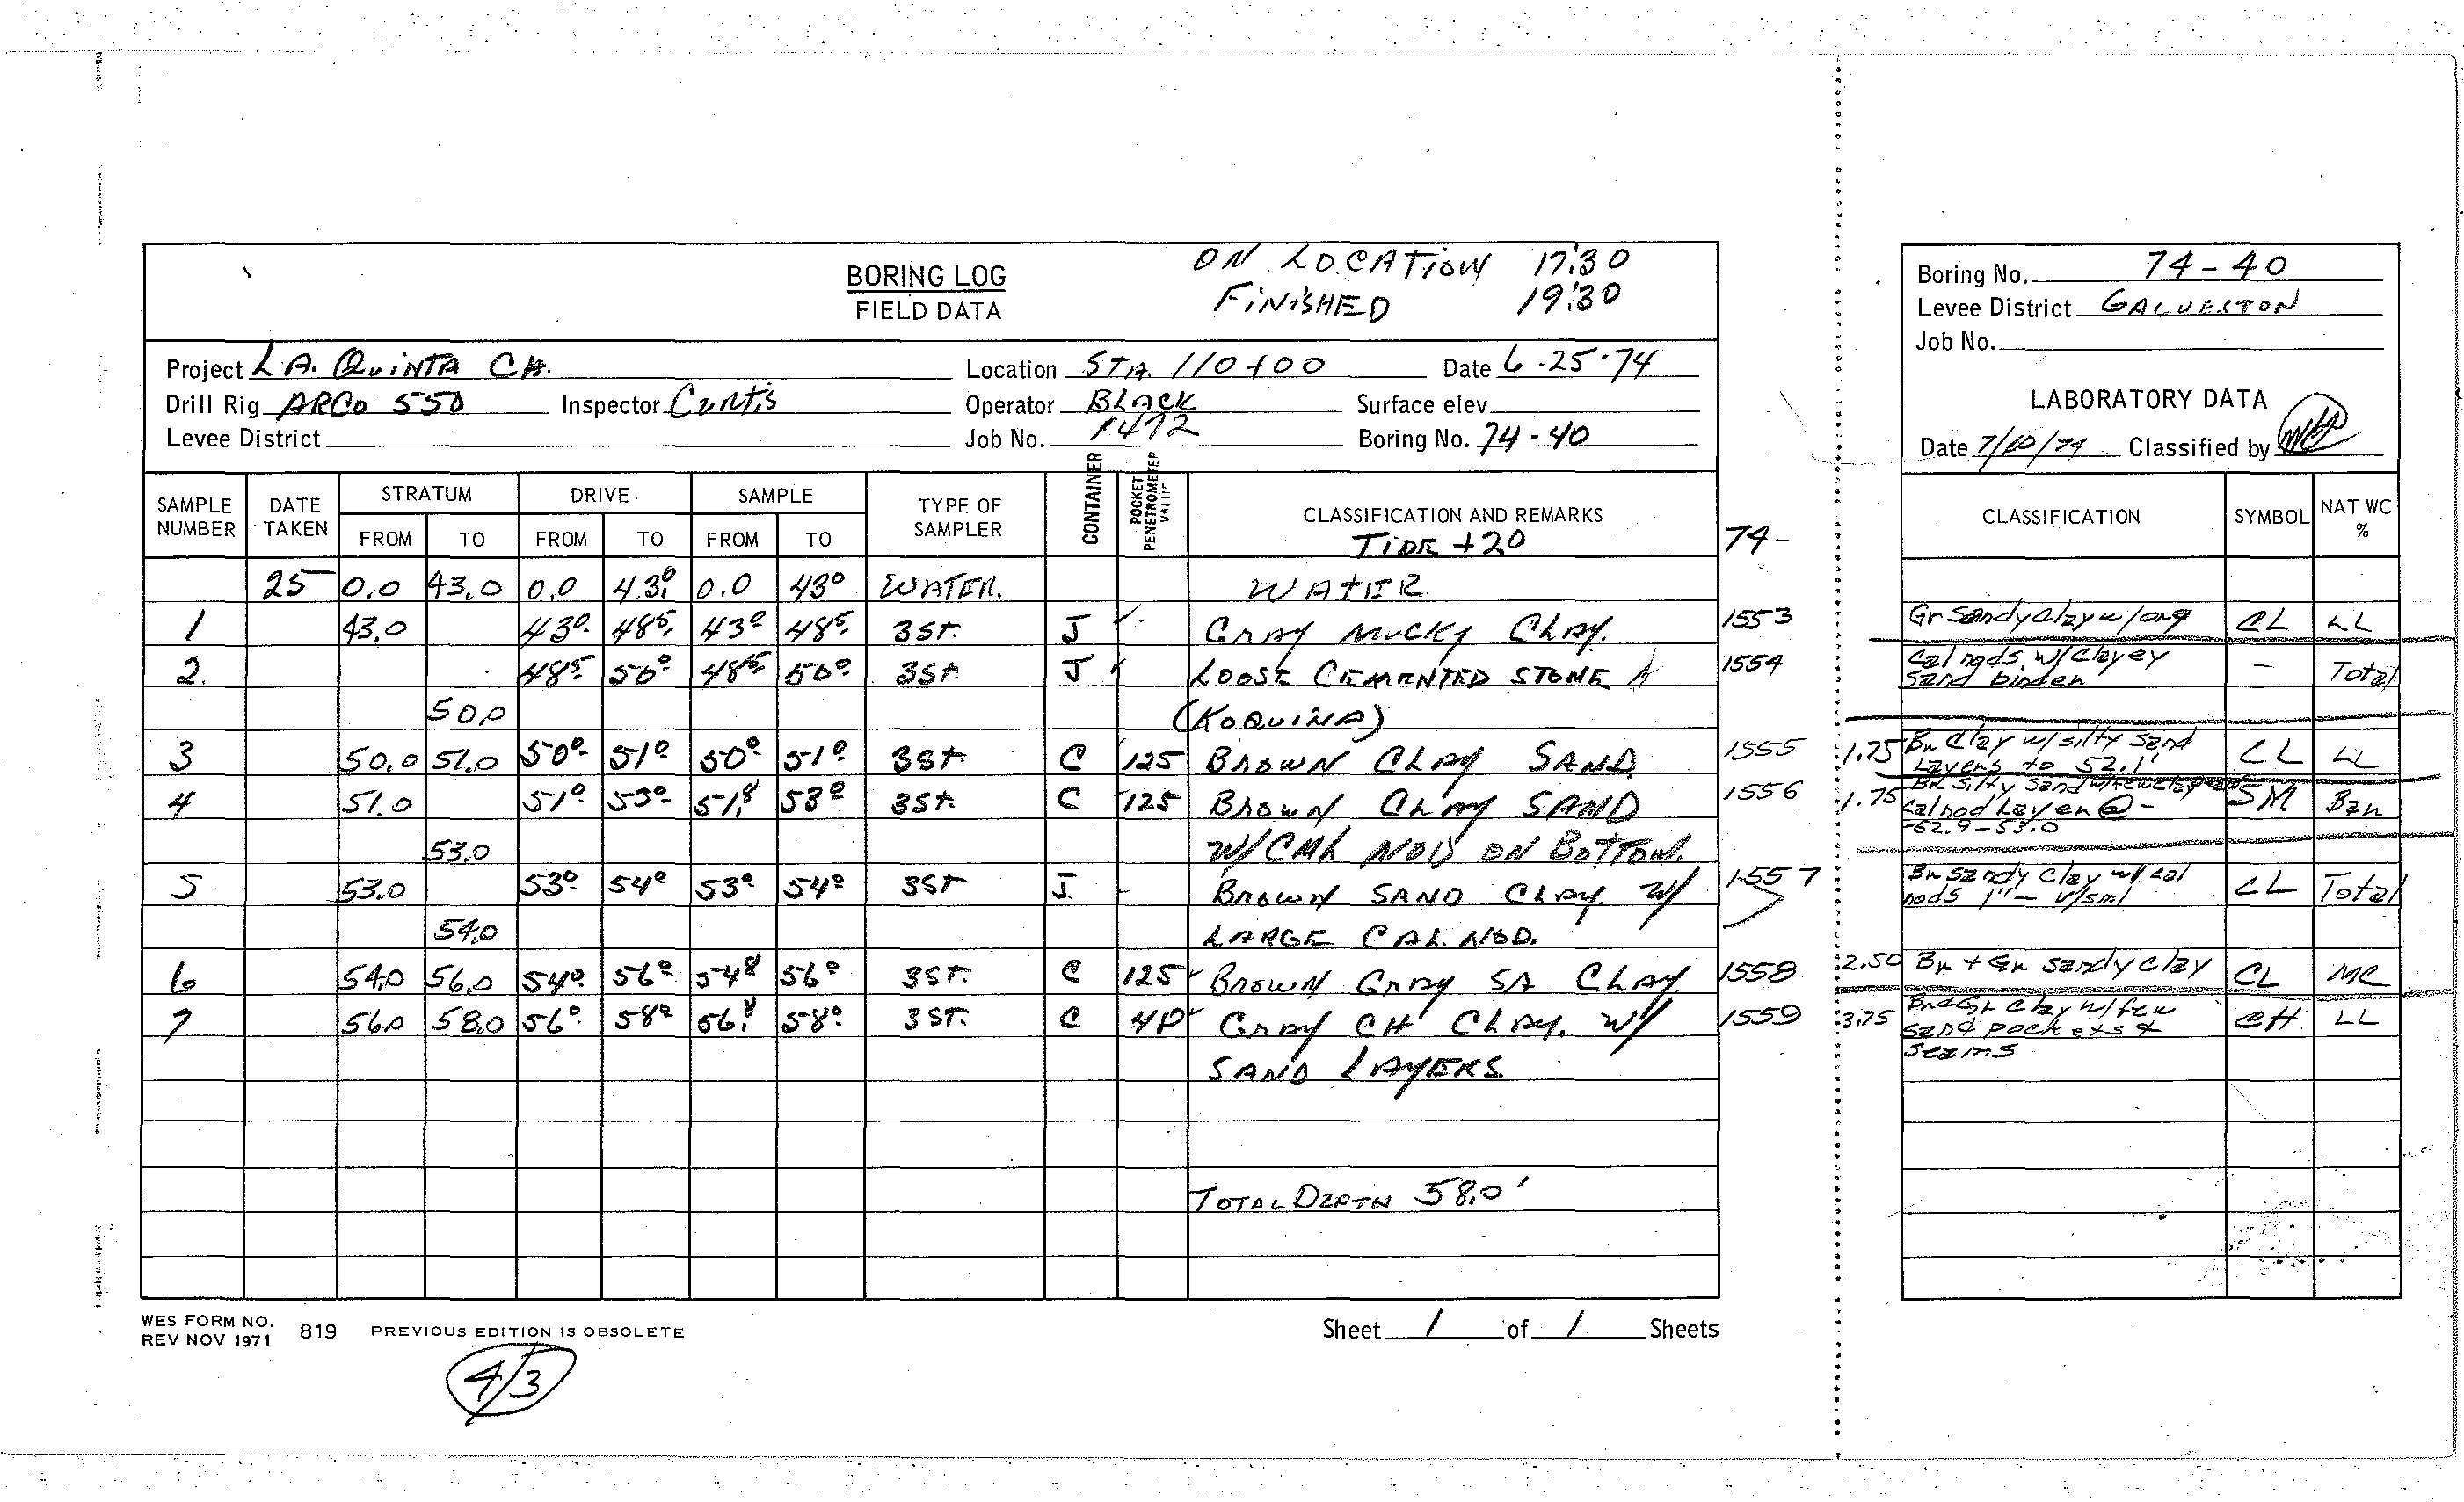 BORING LOG
FIELD DATA
ON LOCATION 17:30
FINISHED 19:30
Project LA. QUINTA CH. Location STA. 110+00 Date 6-25-74
Drill Rig ARCO 550 Inspector CURTIS Operator BLACK Surface elev.
Levee District Job No. 1472 Boring No. 74-40
SAMPLE NUMBER DATE TAKEN STRATUM FROM TO DRIVE FROM TO SAMPLE FROM TO TYPE OF SAMPLER CONTAINER POCKET PENETROMETER VALUE CLASSIFICATION AND REMARKS
TIDE +20 74-
25 0.0 43.0 0.0 43.0 0.0 43.0 WATER. WATER.
1 43.0 43.0 48.5 43.0 48.5 3ST. J GRAY MUCKY CLAY. 1553
2. 48.5 50.0 48.5 50.0 3ST J LOOSE CEMENTED STONE 1554
50.0 (KOQUINA)
3 50.0 51.0 50.0 51.0 50.0 51.0 3ST C 125 BROWN CLAY SAND 1555
4 51.0 51.0 53.0 51.8 53.0 3ST. C 125 BROWN CLAY SAND 1556
53.0 W/CAL NOD ON BOTTOM.
5 53.0 53.0 54.0 53.0 54.0 3ST J. - BROWN SAND CLAY. W/ 1557
54.0 LARGE CAL. NOD.
6 54.0 56.0 54.0 56.0 54.8 56.0 3ST. C 125 BROWN GRAY SA CLAY 1558
7 56.0 58.0 56.0 58.0 56.8 58.0 3ST. C 4P GRAY CH CLAY. W/ 1559
SAND LAYERS.
TOTAL DEPTH 58.0'
WES FORM NO. 819 PREVIOUS EDITION IS OBSOLETE
REV NOV 1971
Sheet 1 of 1 Sheets
4/3
Boring No. 74-40
Levee District GALVESTON
Job No.
LABORATORY DATA
Date 7/10/74 Classified by
CLASSIFICATION SYMBOL NAT WC %
Gr Sandy clay w/org CL LL
Cal nods. w/clayey
sand binder - Total
1.75 Bn clay w/ silty sand
layers to 52.1' CL LL
1.75 Bn silty sand
Cal nod layer @ - SM Ban
52.9-53.0
Bn sandy clay w/ cal
nods 1" - v/sml CL Total
2.50 Bn + Gr sandy clay CL MC
3.75 Bn & Gr clay w/ few
sand pockets & CH LL
seams